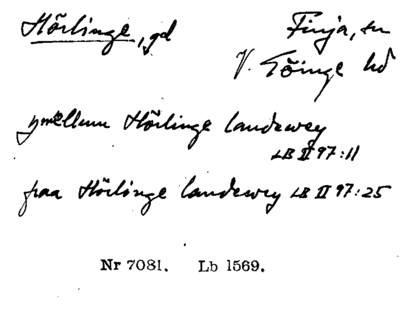 Hörlinge, gd
Finja, sn
V. Göinge hd
ymellum Hörlinge landewey
LB II 97:11
fraa Hörlinge landewey LB II 97:25
Nr 7081. Lb 1569.